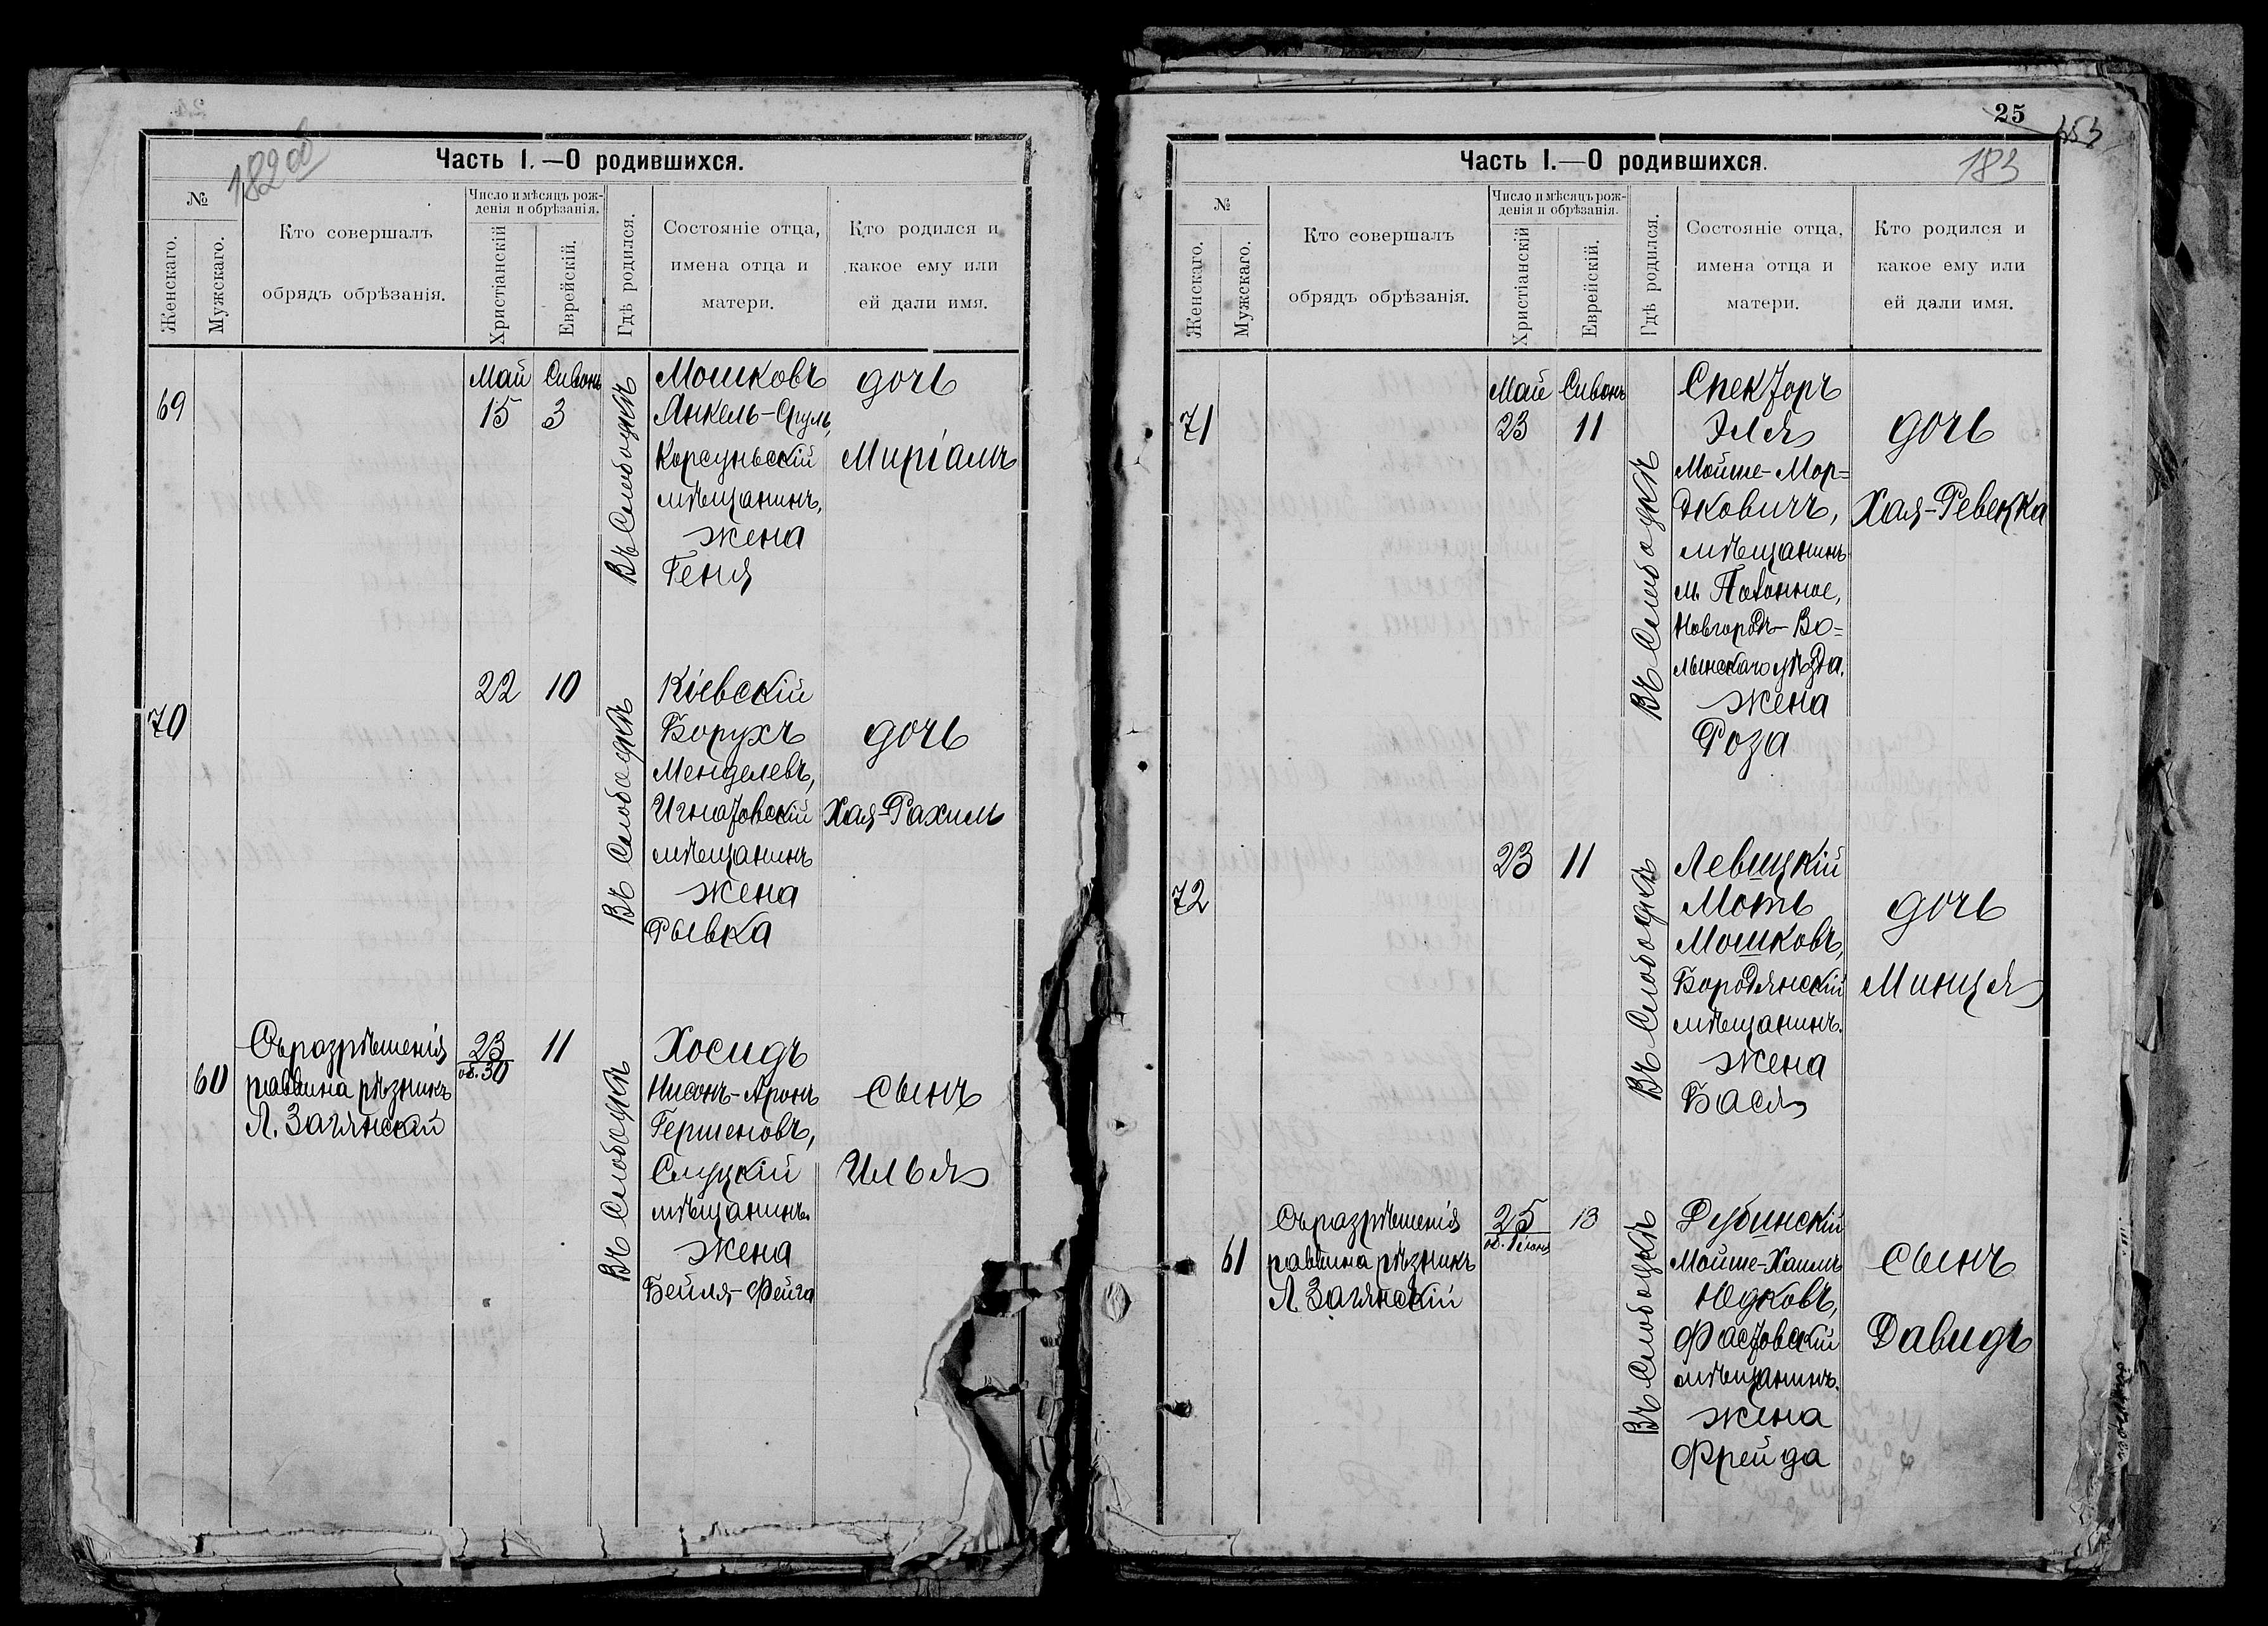 182 об
Часть I.—О родившихся.
№
Женскаго.
Мужскаго.
Кто совершалъ
обрядъ обрѣзанія.
Число и мѣсяцъ рож-
денія и обрѣзанія.
Христіанскій
Еврейскій.
Гдѣ родился.
Состояніе отца,
имена отца и
матери.
Кто родился и
какое ему или
ей дали имя.
69
Май
15
Сивонъ
3
Въ Слободкѣ
Мошковъ
Янкель-Сруль,
Корсуньскій
мѣщанинъ,
жена
Геня
дочь
Миріамъ
70
22
10
Въ Слободкѣ
Кіевскій
Борухъ
Менделевъ,
Игнатовскій
мѣщанинъ
жена
Рывка
дочь
Хая-Рахиль
60
Съ разрѣшенія
раввина рѣзникъ
Л. Загянскій
23
об. 30
11
Въ Слободкѣ
Хосидъ
Нисонъ-Аронъ
Гершеновъ,
Слуцкій
мѣщанинъ.
жена
Бейля-Фейга
сынъ
Илья
25
183
Часть I.—О родившихся.
№
Женскаго.
Мужскаго.
Кто совершалъ
обрядъ обрѣзанія.
Число и мѣсяцъ рож-
денія и обрѣзанія.
Христіанскій
Еврейскій.
Гдѣ родился.
Состояніе отца,
имена отца и
матери.
Кто родился и
какое ему или
ей дали имя.
71
Май
23
Сивонъ
11
Въ Слободкѣ
Спекторъ
Эля
Мойше-Мор=
дковичъ,
мѣщанинъ
м. Полонное,
Новгородъ-Во=
лынскаго уѣзда.
жена
Роза
дочь
Хая-Ревекка
72
23
11
Въ Слободкѣ
Левицкій
Моть
Мошковъ,
Бородянскій
мѣщанинъ.
жена
Бася
дочь
Минця
61
Съ разрѣшенія
раввина рѣзникъ
Л. Загянскій
25
об. 1 іюня
13
Въ Слободкѣ
Дубинскій
Мойше-Хаимъ
Юдковъ,
Фастовскій
мѣщанинъ.
жена
Фрейда
сынъ
Давидъ